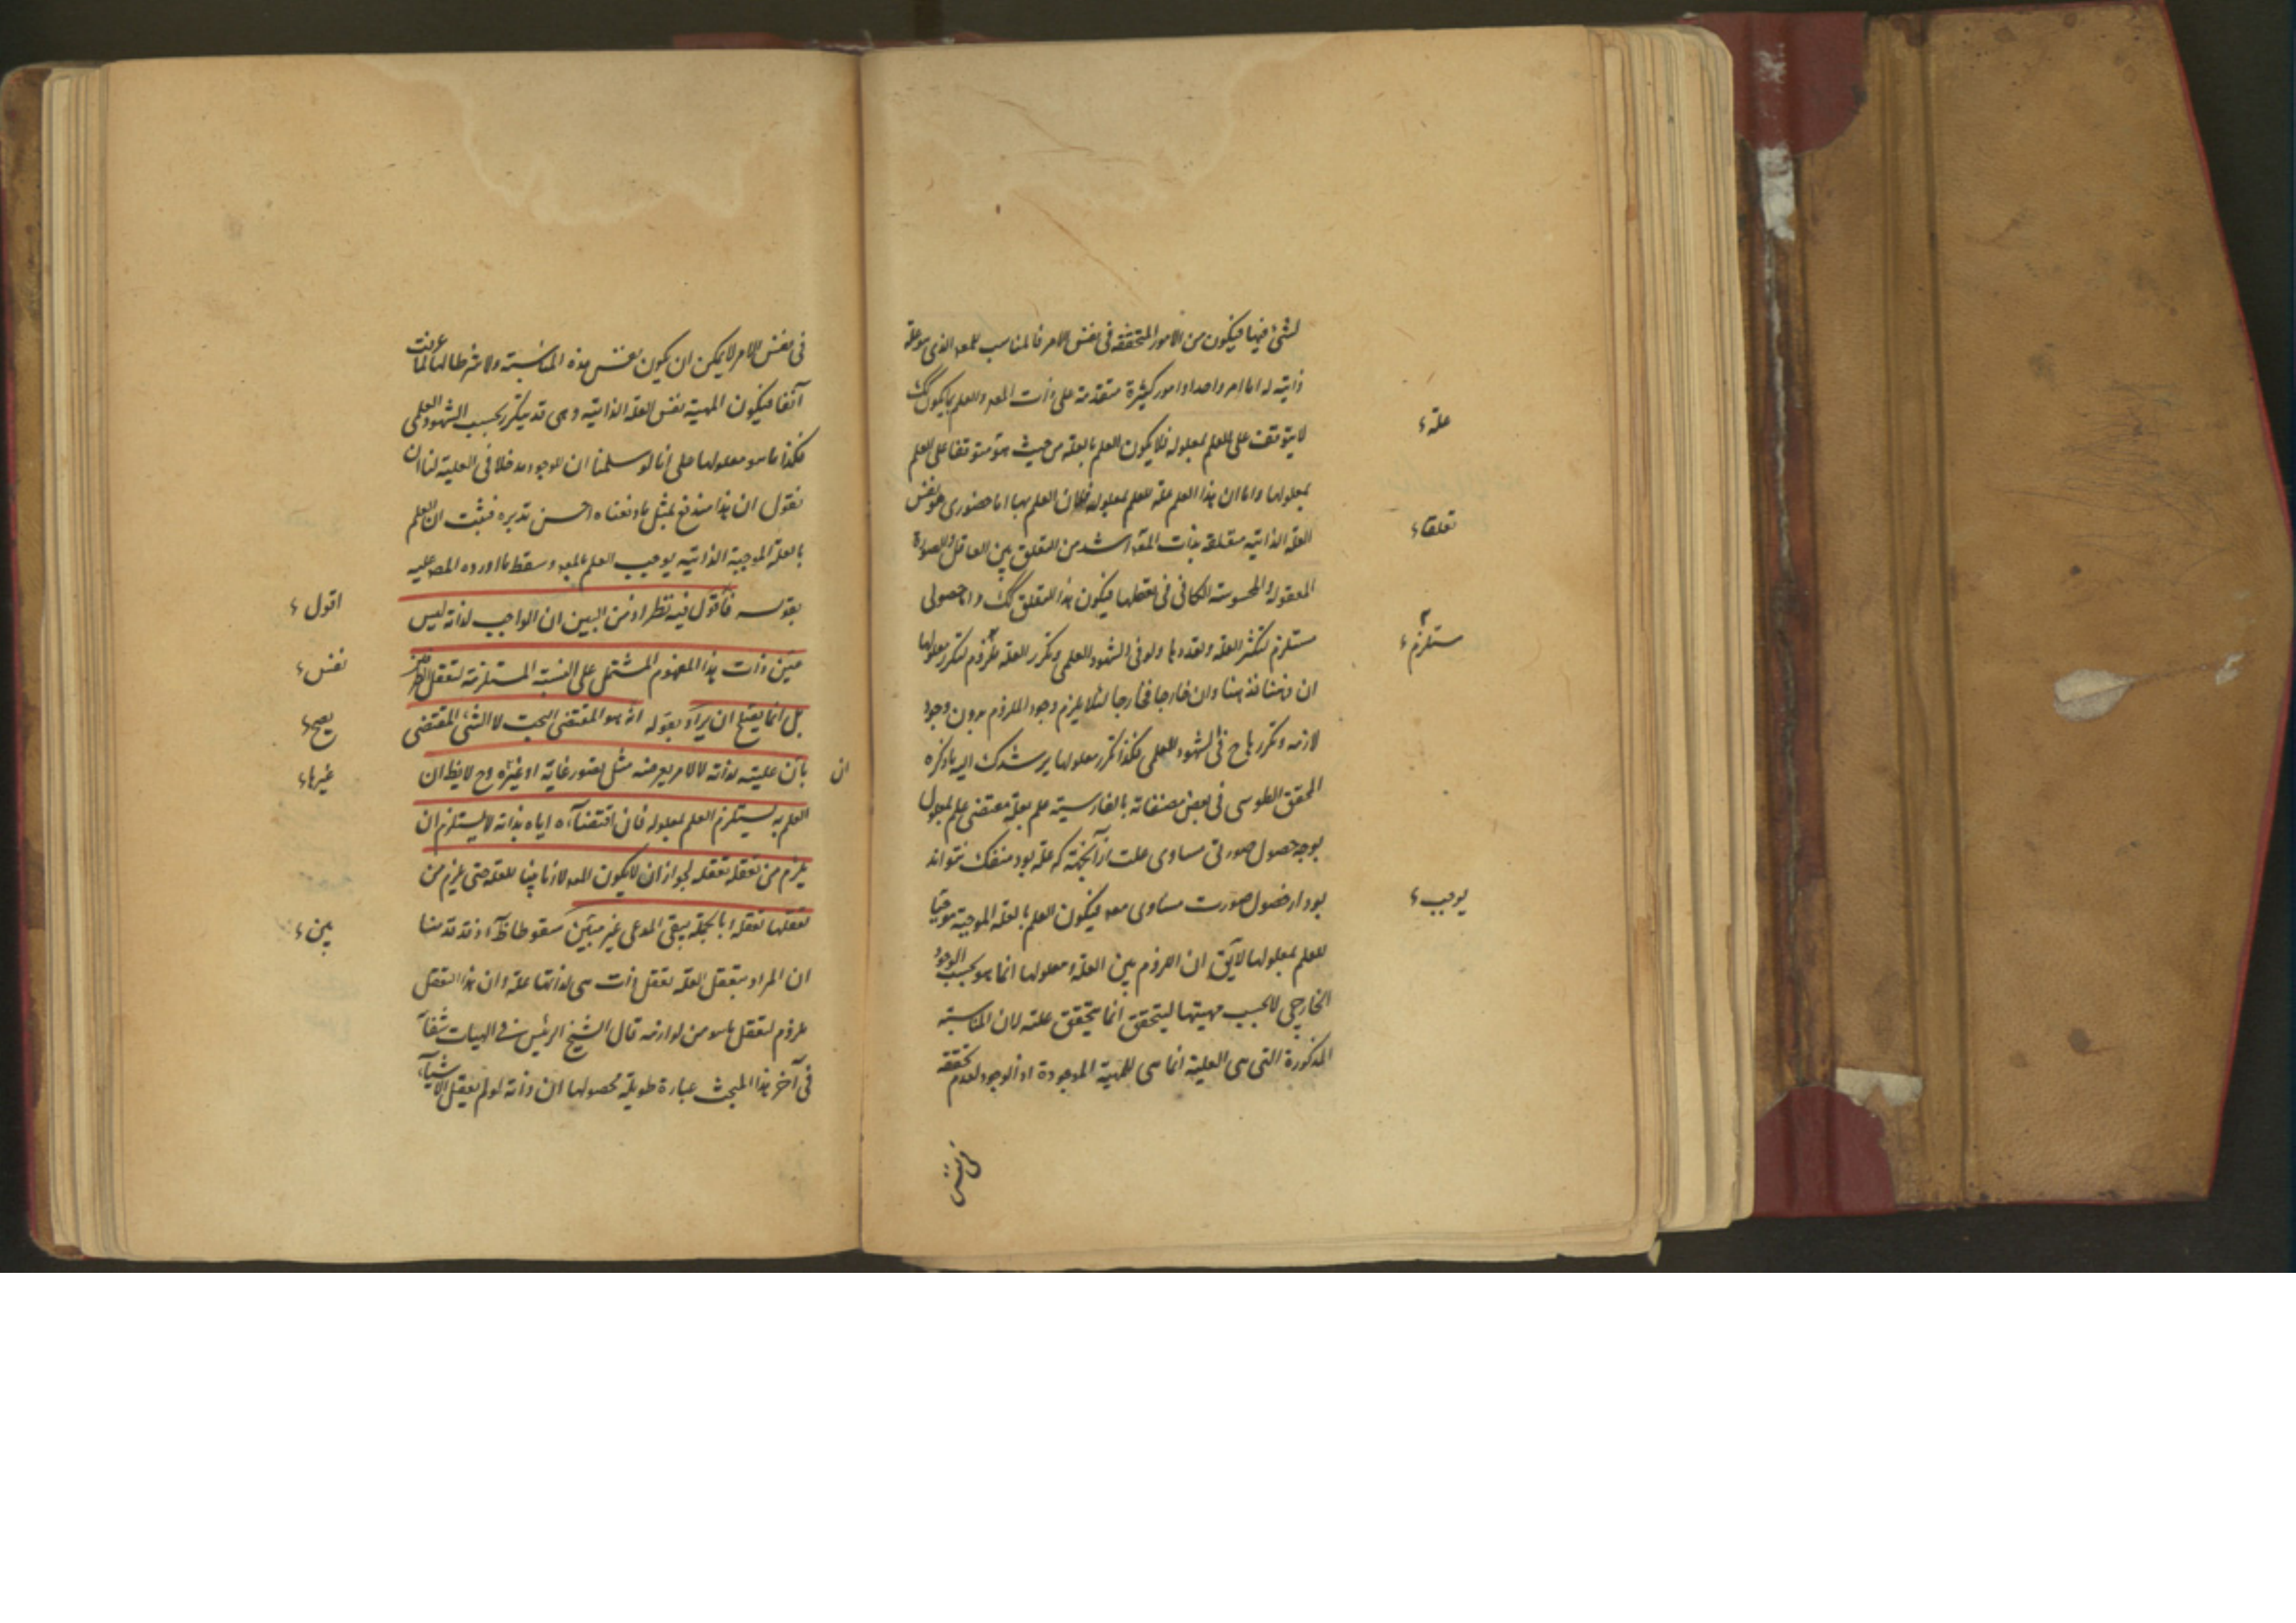 لشئ فيها فيكون من الامور المتحققه فى نفس الامر فالمناسب للمعه الذى هو علة
ذاتيه له اما امر واحد او امور كثيرة متقدمة على ذات المعه والعلم بما يكون كك
لا يتوقف على العلم بمعلوله فلا يكون العلم بالعلة من حيث هو متوقفا على العلم
علة
بمعلولها واما ان هذا العلم علة للعلم بمعلوله فلان العلم بها اما حضورى هو نفس
العلة الذاتيه متعلقة بذات المعه اشد من التعلق بين العاقل والصورة
تعلقا
المعقوله والمحسوسة الكافى فى تعقلها فيكون هذا التعلق كك واما حصولى
مستلزم لتكثر العلة وتعددها ولو فى الشهود العلمى وتكرر العلة ملزوم لتكرر معلولها
مستلزم
ان ذهنا فذهنا وان خارجا فخارجا لئلا يلزم وجود الملزوم بدون وجود
لازمه وتكررها ح فى الشهود العلمى فكذا تكرر معلولها يرشدك اليه ما ذكره
المحقق الطوسى فى بعض مصنفاته بالفارسية علم بعلة مقتضى علم بمعلول
بود چه حصول صورتى مساوى علت از آنجهة كه علة بود منفك نتواند
بود از حصول صورت مساوى معه فيكون العلم بالعلة الموجبة موجبا
يوجب
للعلم بمعلولها لايق ان اللزوم بين العلة ومعلولها انما هو بحسب الوجود
الخارجى لا بحسب مهيتها ليتحقق انما تحقق علته لان المناسبة
المذكورة التى هى العلية انما هى للمهية الموجودة او الوجود لعدم تحققه
فى نفس
فى نفس الامر لا يمكن ان يكون نفس هذه المناسبة ولا شرطا لها لما عرفت
آنفا فيكون المهية نفس العلة الذاتية وهى قد يتكرر بحسب الشهود العلمى
فكذا ما هو معلولها على انا لو سلمنا ان للوجود مدخلا فى العلية لنا ان
نقول ان هذا مندفع بمثل ما دفعناه احسن تدبره فثبت ان العلم
بالعلة الموجبة الذاتيه يوجب العلم بالمعه وسقط ما اورده المص عليه
بقوله فأقول فيه نظر اذ من البين ان الواجب لذاته ليس
اقول
عين ذات هذا المفهوم المشتمل على النسبة المستلزمة لتعقل الطرفين
نفس
بل انما يصح ان يراد بقوله انه هو المقتضى البحت لا الشئ المقتضى
يصح
بان عليته لذاته لا لامر يعرضه مثل تصور غاية او غيره وح لا يظ ان
ان
غيرها
العلم به يستلزم العلم بمعلوله فان اقتضاءه اياه بذاته لا يستلزم ان
يلزم من تعقله تعقله لجواز ان لا يكون المعه لازما بينا للعلة حتى يلزم من
تعقلها تعقله وبالجملة يبقى المدعى غير مبين سقوطا ظ اذ قد قدمنا
بين
ان المراد بتعقل العلة تعقل ذات هى لذاتها علة وان هذا التعقل
ملزوم لتعقل ما هو من لوازمه قال الشيخ الرئيس فى الهيات شفآ
فى آخر هذا المبحث عبارة طويلة محصولها ان ذاته لو لم يعقل الاشياء